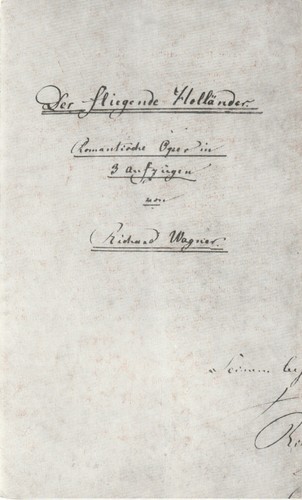 Der fliegende Holländer.
Romantische Oper in
3 Aufzügen
von
Richard Wagner.
Seinem